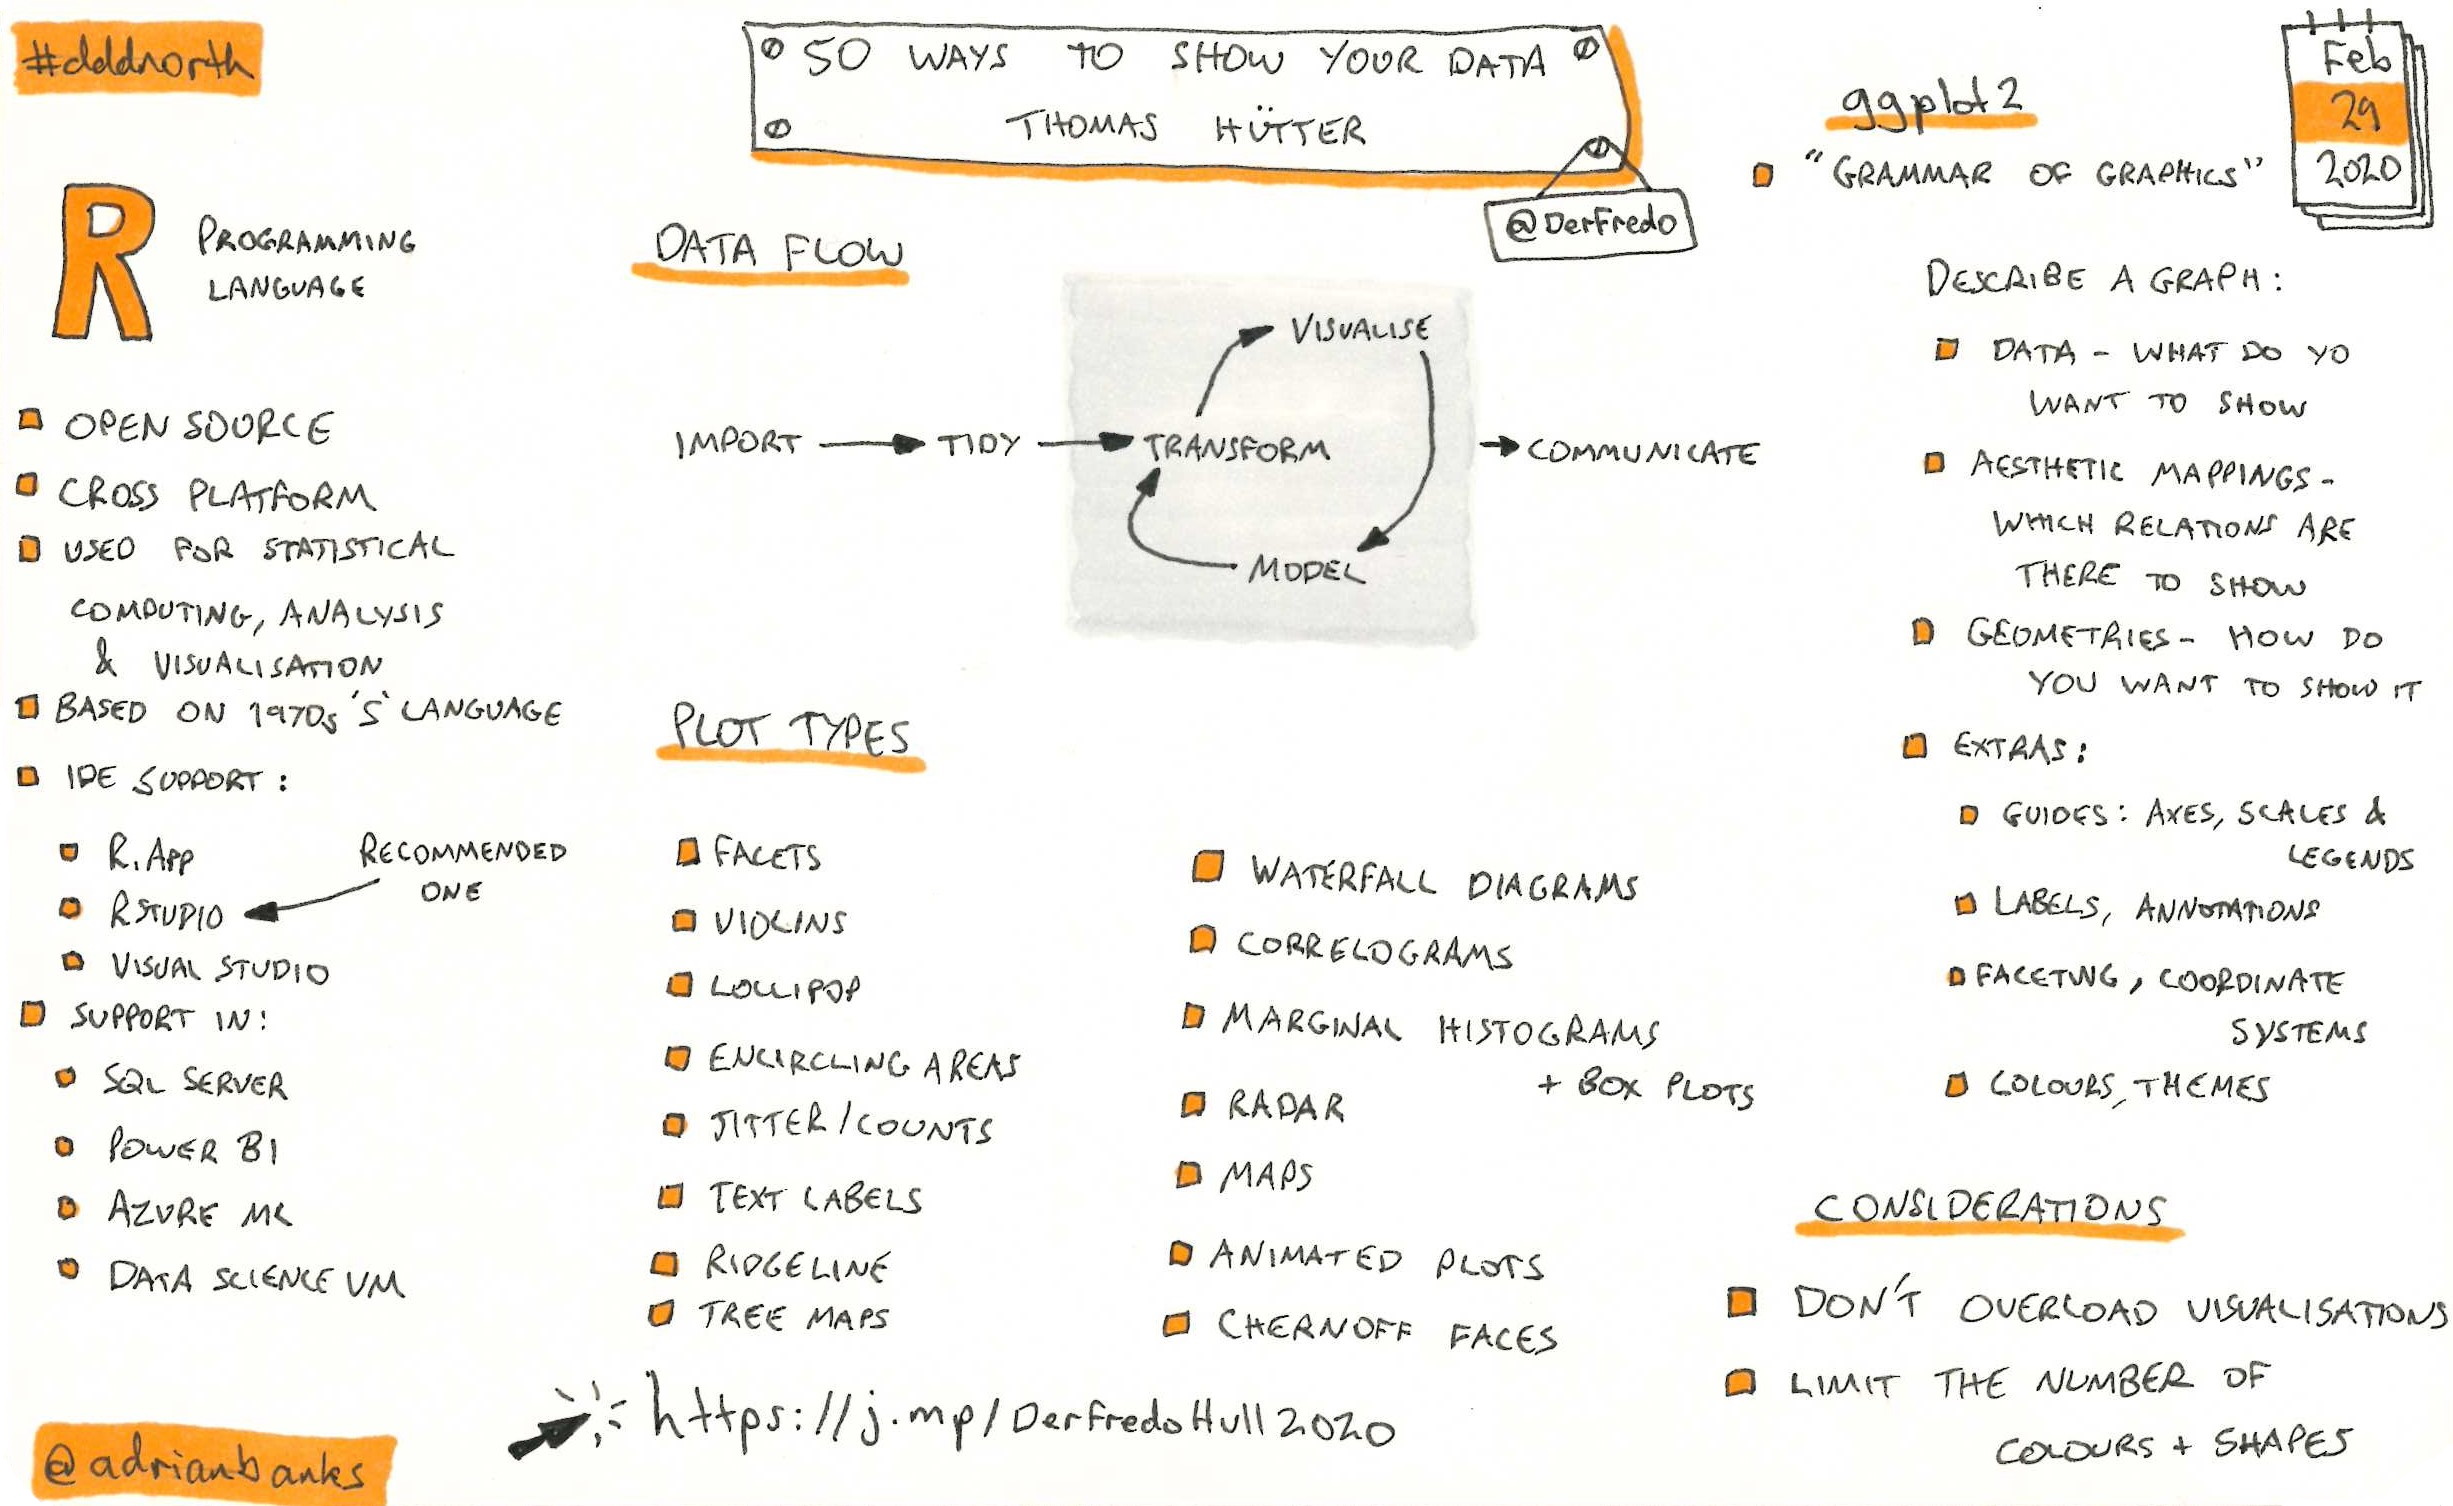 #dddnorth
50 WAYS TO SHOW YOUR DATA
THOMAS HÜTTER
@DerFredo
Feb
29
2020
R
PROGRAMMING
LANGUAGE
OPEN SOURCE
CROSS PLATFORM
USED FOR STATISTICAL
COMPUTING, ANALYSIS
& VISUALISATION
BASED ON 1970s 'S' LANGUAGE
IDE SUPPORT:
R.APP
RSTUDIO
RECOMMENDED
ONE
VISUAL STUDIO
SUPPORT IN:
SQL SERVER
POWER BI
AZURE ML
DATA SCIENCE VM
DATA FLOW
IMPORT
TIDY
TRANSFORM
VISUALISE
MODEL
COMMUNICATE
PLOT TYPES
FACETS
VIOLINS
LOLLIPOP
ENCIRCLING AREAS
JITTER/COUNTS
TEXT LABELS
RIDGELINE
TREE MAPS
WATERFALL DIAGRAMS
CORRELOGRAMS
MARGINAL HISTOGRAMS
+ BOX PLOTS
RADAR
MAPS
ANIMATED PLOTS
CHERNOFF FACES
ggplot2
"GRAMMAR OF GRAPHICS"
DESCRIBE A GRAPH:
DATA - WHAT DO YO
WANT TO SHOW
AESTHETIC MAPPINGS -
WHICH RELATIONS ARE
THERE TO SHOW
GEOMETRIES - HOW DO
YOU WANT TO SHOW IT
EXTRAS:
GUIDES: AXES, SCALES &
LEGENDS
LABELS, ANNOTATIONS
FACETING, COORDINATE
SYSTEMS
COLOURS, THEMES
CONSIDERATIONS
DON'T OVERLOAD VISUALISATIONS
LIMIT THE NUMBER OF
COLOURS + SHAPES
https://j.mp/DerFredoHull2020
@adrianbanks